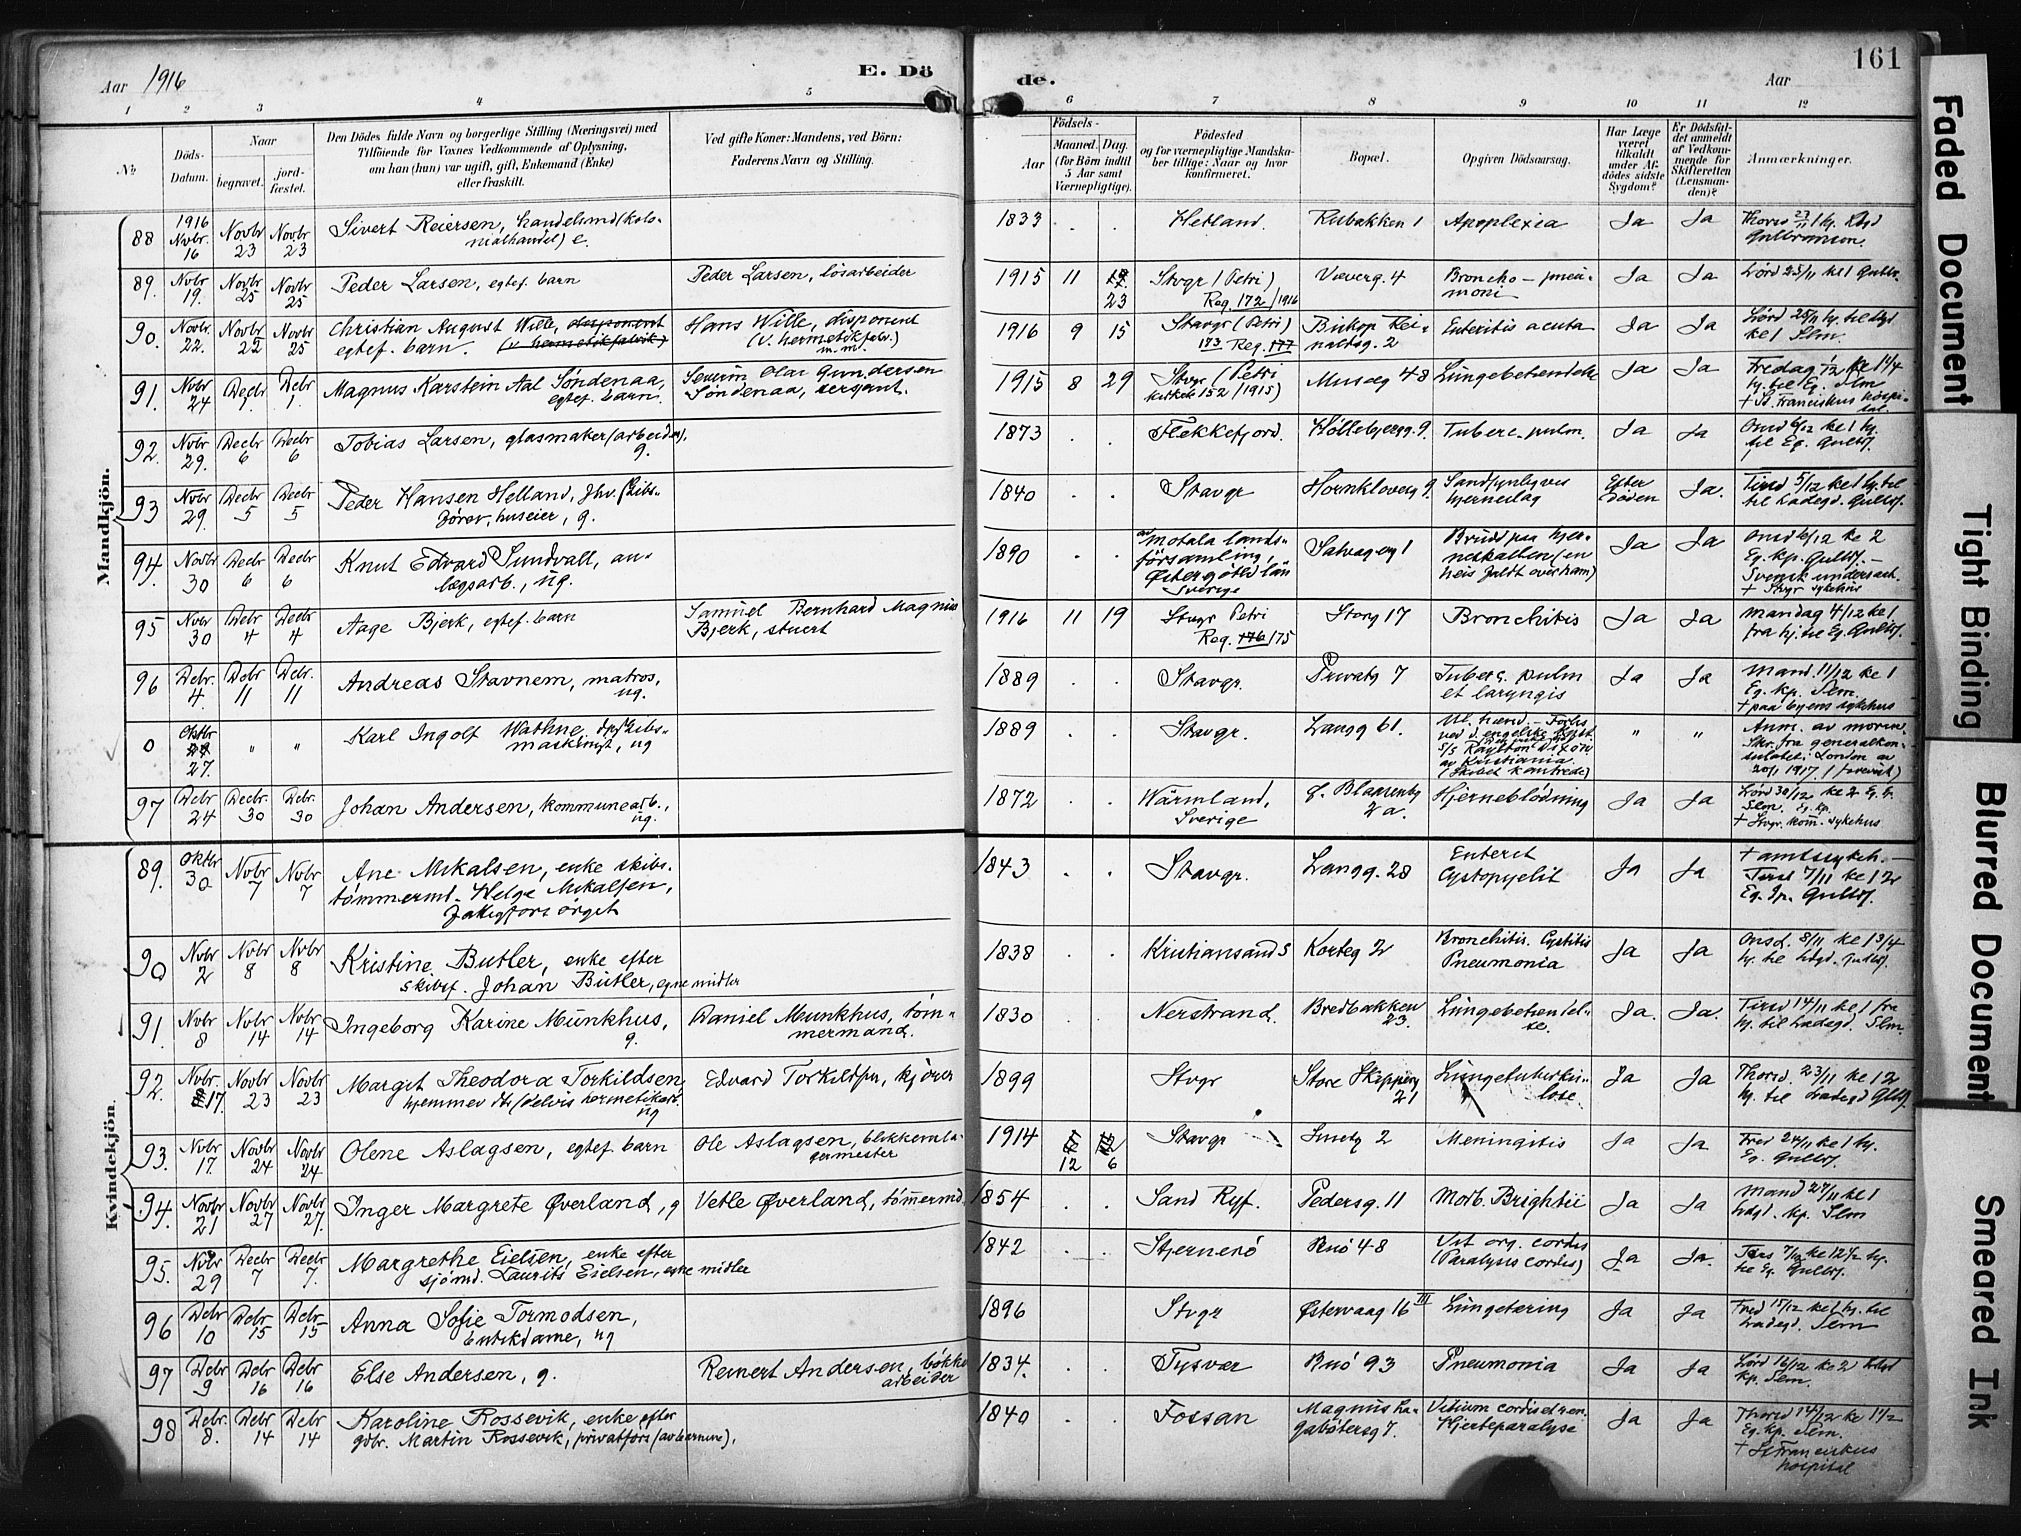 161
Aar 1916
E. Döde.
Aar
1 2 3 4 5 6 7 8 9 10 11 12
No.
Döds-Datum.
Naar
begravet.
jord-fæstet.
Den Dödes fulde Navn og borgerlige Stilling (Næringsvei) med
Tilföiende for Voxnes Vedkommende af Oplysning,
om han (hun) var ugift, gift, Enkemand (Enke)
eller fraskilt.
Ved gifte Koner: Mandens, ved Börn:
Faderens Navn og Stilling.
Födsels-
Aar
Maaned.
Dag.
(for Börn indtil
5 Aar samt
Værnepligtige).
Födested
og for værnepligtige Mandska-
ber tillige: Naar og hvor
konfirmeret.
Bopæl.
Opgiven Dödsaarsag.
Har Læge
været
tilkaldt
under Af-
dödes sidste
Sygdom?
Er Dödsfal-
det anmeldt
af Vedkom-
mende for
Skifteretten
(Lensman-
den)?
Anmærkninger.
Mandkjön.
88 1916 Novbr. 16 Novbr 23 Novbr 23 Sivert Reiersen, handelsmd (kolo-
nialhandel) e.
1833 . . Hetland. Rubakken 1 Apoplexia Ja Ja
89. Nvbr 19. Novbr 25 Novbr 25 Peder Larsen, egtef. barn Peder Larsen, lösarbeider
1915 11 23 Stvgr (Petri)
Reg. 172/1916
Væverg. 4 Broncho-pneu-
moni Ja Ja Lörd 25/11 kl 1
90. Novbr. 22. Novbr 22 Novbr 25 Christian August Wille, disponent
egtef. barn. (v hermetikfabrik)
Hans Wille, disponent
(v. hermetikfabr.)
m.m.
1916 9 15 Stavgr (Petri)
173 Reg. 177
Biskop Rei-
naldsg. 2 Enteritis acuta Ja Ja
91. Nvbr 24 Decbr 1. Debr 1. Magnus Karstein Aal Söndenaa,
egtef. barn.
Severin Olai Gundersen
Söndenaa, sergeant.
1915 8 29 Stvgr (Petri
152 / 1915)
Museg 48 Lungebetændelse Ja Ja Fredag 1/12
+ St. Franciskus hospi-
tal.
92. Nvbr 29. Decbr 6 Decbr 6 Tobias Larsen, glasmaker (arbeider).
g.
1873 . . Flekkefjord. Köllebjergg. 9. Tuberc. pulm. Ja Ja Onsd 6/12 kl 1 hj.
til Eg. Gulbrf.
93 Nvbr 29. Decbr 5 Decbr 5 Peder Hansen Helland, fhv. skibs-
förer, huseier, g.
1840 . . Stavgr Hornkloveg 9. Sandsynligvis
hjerneslag Efter
döden Ja. Tirsd 5/12 kl 1 hj. til
til Ladegd. Gulbrf.
94. Novbr 30 Decbr 6 Decbr 6 Knut Edvard Sundvall, an-
legsarb., ug.
1890 . . Motala lands-
församling,
Östergötld län
Sverige
Brudd paa hjer-
neskallen (en
heis faldt over ham)
Ja Ja Onsd 6/12 kl 2
Eg. kp. Gulbrf. -
Svensk undersaat.
+ Stvgr sykehus
95 Nvbr 30 Debr 4 Decbr 4 Aage Bjerk, egtef. barn Samuel Bernhard Magnus
Bjerk, stuert
1916 11 19 Stvgr Petri
Reg. 176/175
Storg 17 Bronchitis Ja Ja Mandag 4/12 kl 1
fra hj. til Eg. Gulbrf.
96 Debr. 4. Debr 11 Debr. 11 Andreas Stavnem, matros,
ug.
1889 . . Stavgr. Privatg 7 Tuberc. pulm
et laryngis Ja Ja Mand. 11/12 kl 1
Eg. kp. Slm.
+ paa byens sykehus
0 Oktbr 27. " " Karl Ingolf Wathne, skibs-
maskinist, ug
1889 . . Stavgr. Langg 61.
s/s Raylton Dixon
av Kristiania
(Skibet kantrede)
" " Anm. av moren.
Skr. fra generalkon-
sulatet i London av
20/1 1917.
97 Debr 24 Decbr. 30 Debr. 30 Johan Andersen, kommunearb.,
ug.
1872 . . Wärmland,
Sverige
2a. Hjerneblödning Ja Ja Lörd 30/12 kl 2
Slm. Eg. kp.
+ Stvgr. kom. sykehus
Kvindekjön.
89. Oktbr 30 Nvbr 7 Nvbr 7 Ane Mikalsen, enke skibs-
tömmermd. Helge Mikalsen,
fattigforsörget
1843 . . Stavgr. Langg. 28 Enterit
Cystopyelit Ja Ja + amtssykeh. -
Tirsd 7/11 kl 12
Eg. kp. Gulbrf.
90 Nvbr 2 Nvbr 8 Nvbr 8 Kristine Butler, enke efter
skibsf. Johan Butler, egne midler
1838 . . Kristiansand S Korteg 2 Bronchitis. Cystitis
Pneumonia Ja Ja Onsd. 8/11 kl 1 3/4
91. Nvbr 8 Nvbr 14 Nvbr 14 Ingeborg Karine Munkhus,
g.
Daniel Munkhus, töm-
mermand.
1830 . . Nerstrand. Bredbakken
23. Lungebetændel-
se. Ja. Ja. Tirsd 14/11 kl 1 fra
hj. til Ladegd. Slm.
92. Nvbr. 17. Novbr 23 Novbr 23 Margit Theodora Torkildsen,
hjemmev. dtr (delvis hermetikarb.
ug
Edvard Torkildsen, kjörer
1899 Stvgr Store Skipperg
21 Lungetuberku-
lose. Ja Ja Thorsd. 23/11 kl 12
hj. til Ladegd Gulbrf.
93. Nvbr 17. Novbr 24 Novbr 24 Olene Aslagsen, egtef. barn Ole Aslagsen, blikkemla-
germester
1914 12 6 Stavgr Smetg 2 Meningitis Ja Ja Fred 24/11 kl 1 hj.
Eg. Gulbrf.
94. Novbr 21 Novbr 27 Novbr 27. Inger Margrete Øverland, g Vetle Øverland, tömmermd.
1854 . . Sand Ryf. Pedersg. 11 Morb. Brightii Ja Ja Mand 27/11 kl 1
Ladgd. kp. Slm
95. Nvbr 29 Decbr 7 Decbr 7. Margrethe Eielsen, enke efter
sjömd. Laurits Eielsen, egne midler
1842 . . Stjernerö Buö 48 Vit org. cordis
(Paralysis cordis) Ja Ja. Tors 7/12 kl 12 1/2 hj.
til Eg. Gulbrf.
96 Debr 10 Debr 15 Debr 15 Anna Sofie Tormodsen,
butikdame, ug
1896 . . Stvgr Østervaag 16 III Lungetæring Ja Ja Fred 15/12 kl 1 hj. til
Ladegd. Slm
97 Debr 9 Debr 16 Debr 16 Else Andersen, g. Reinert Andersen,
arbeider
1834. . . Tysvær Buö 93 Pneumonia Ja Ja Lörd 16/12 kl 2
kp. Slm.
98 Debr. 8. Debr 14 Debr 14 Karoline Rossevik, enke efter
gdbr. Martin Rossevik, privatfors (av barnene).
1840 . . Fossan Magnus La-
gabötersg 7. Vitium cordis et ren.
Hjerteparalyse Ja Ja Thorsd 14/12 kl 1 1/2
Eg. kp. Slm.
+ St Franciskus
hospital
Faded Document
Tight Binding
Blurred Document
Smeared Ink